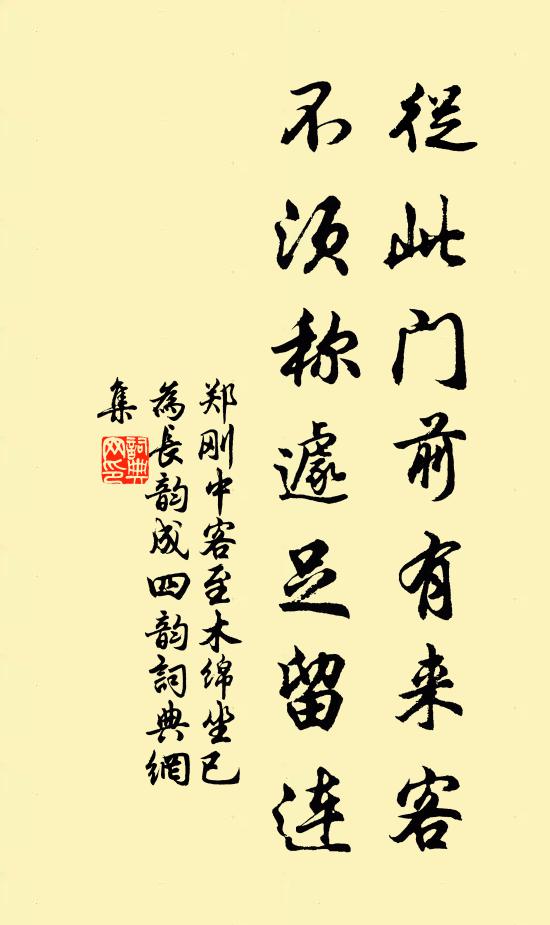 從此门前有来客
不须称遽足留连
郑刚中客至木绵坐已
為長韵成四韵詞典網
集
詞典網印